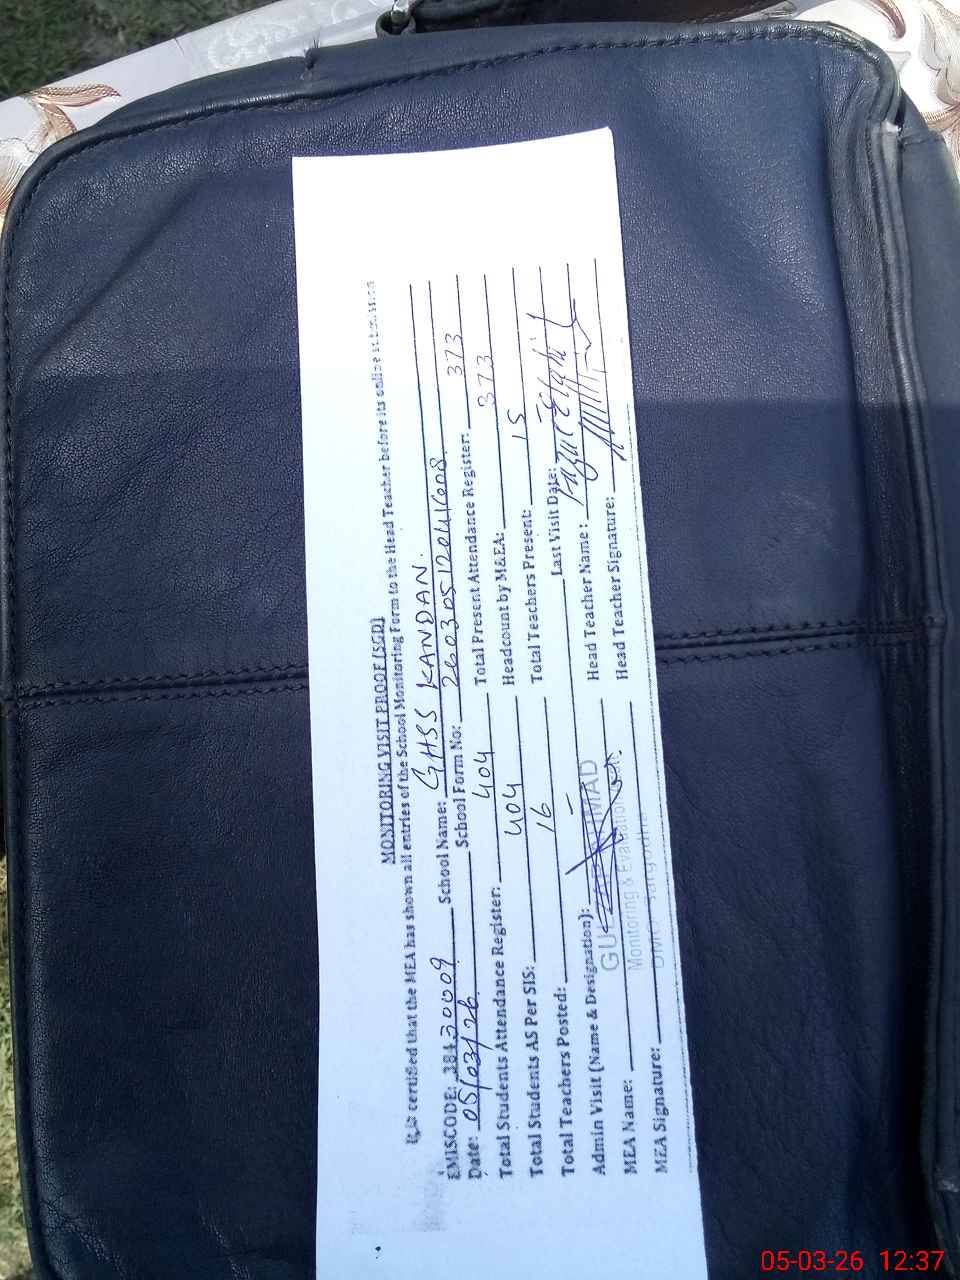 MONITORING VISIT PROOF (SGD)
It is certified that the MEA has shown all entries of the School Monitoring Form to the Head Teacher before its online submission
EMISCODE: 38430009 School Name: GHSS KANDAN.
Date: 05/03/26 School Form No:
Total Students Attendance Register: 404 Total Present Attendance Register: 373
Total Students AS Per SIS: 404 Headcount by M&EA: 373
Total Teachers Posted: 16 Total Teachers Present: 15
Admin Visit (Name & Designation): - Last Visit Date: -
MEA Name: Head Teacher Name: Fazal Elahi
MEA Signature: Head Teacher Signature:
Monitoring & Evaluation
05-03-26 12:37